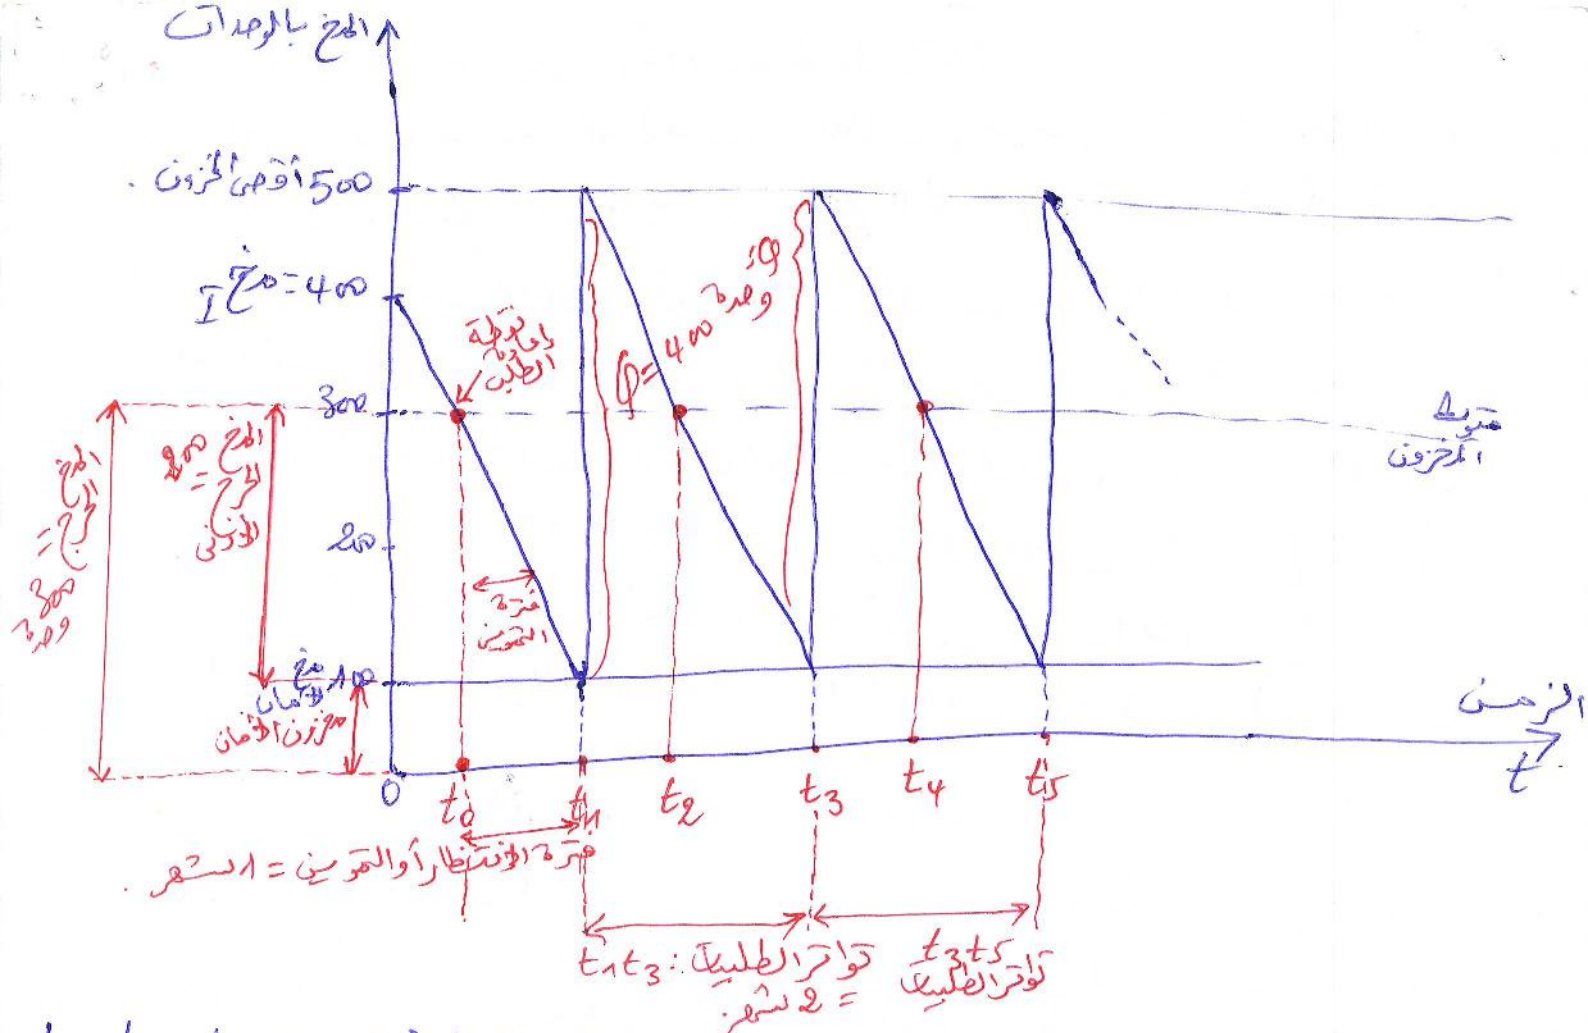 المخ بالوحدات
500 أقصى المخزون .
مخ I = 400
نقطة
إعادة
الطلب
Q = 400 وحدة
Q
300
متوسط
المخزون
المخ
الحرج
الأدنى
= 200
المخ
الحرج =
300
وحدة
200
فترة
التموين
100 مخ
الأمان
مخزون الأمان
الزمن
t
0
t0
t1
t2
t3
t4
t5
فترة الانتظار أو التموين = 1 شهر .
t1t3 : تواتر الطلبيات
= 2 شهر .
t3t5
تواتر الطلبيات